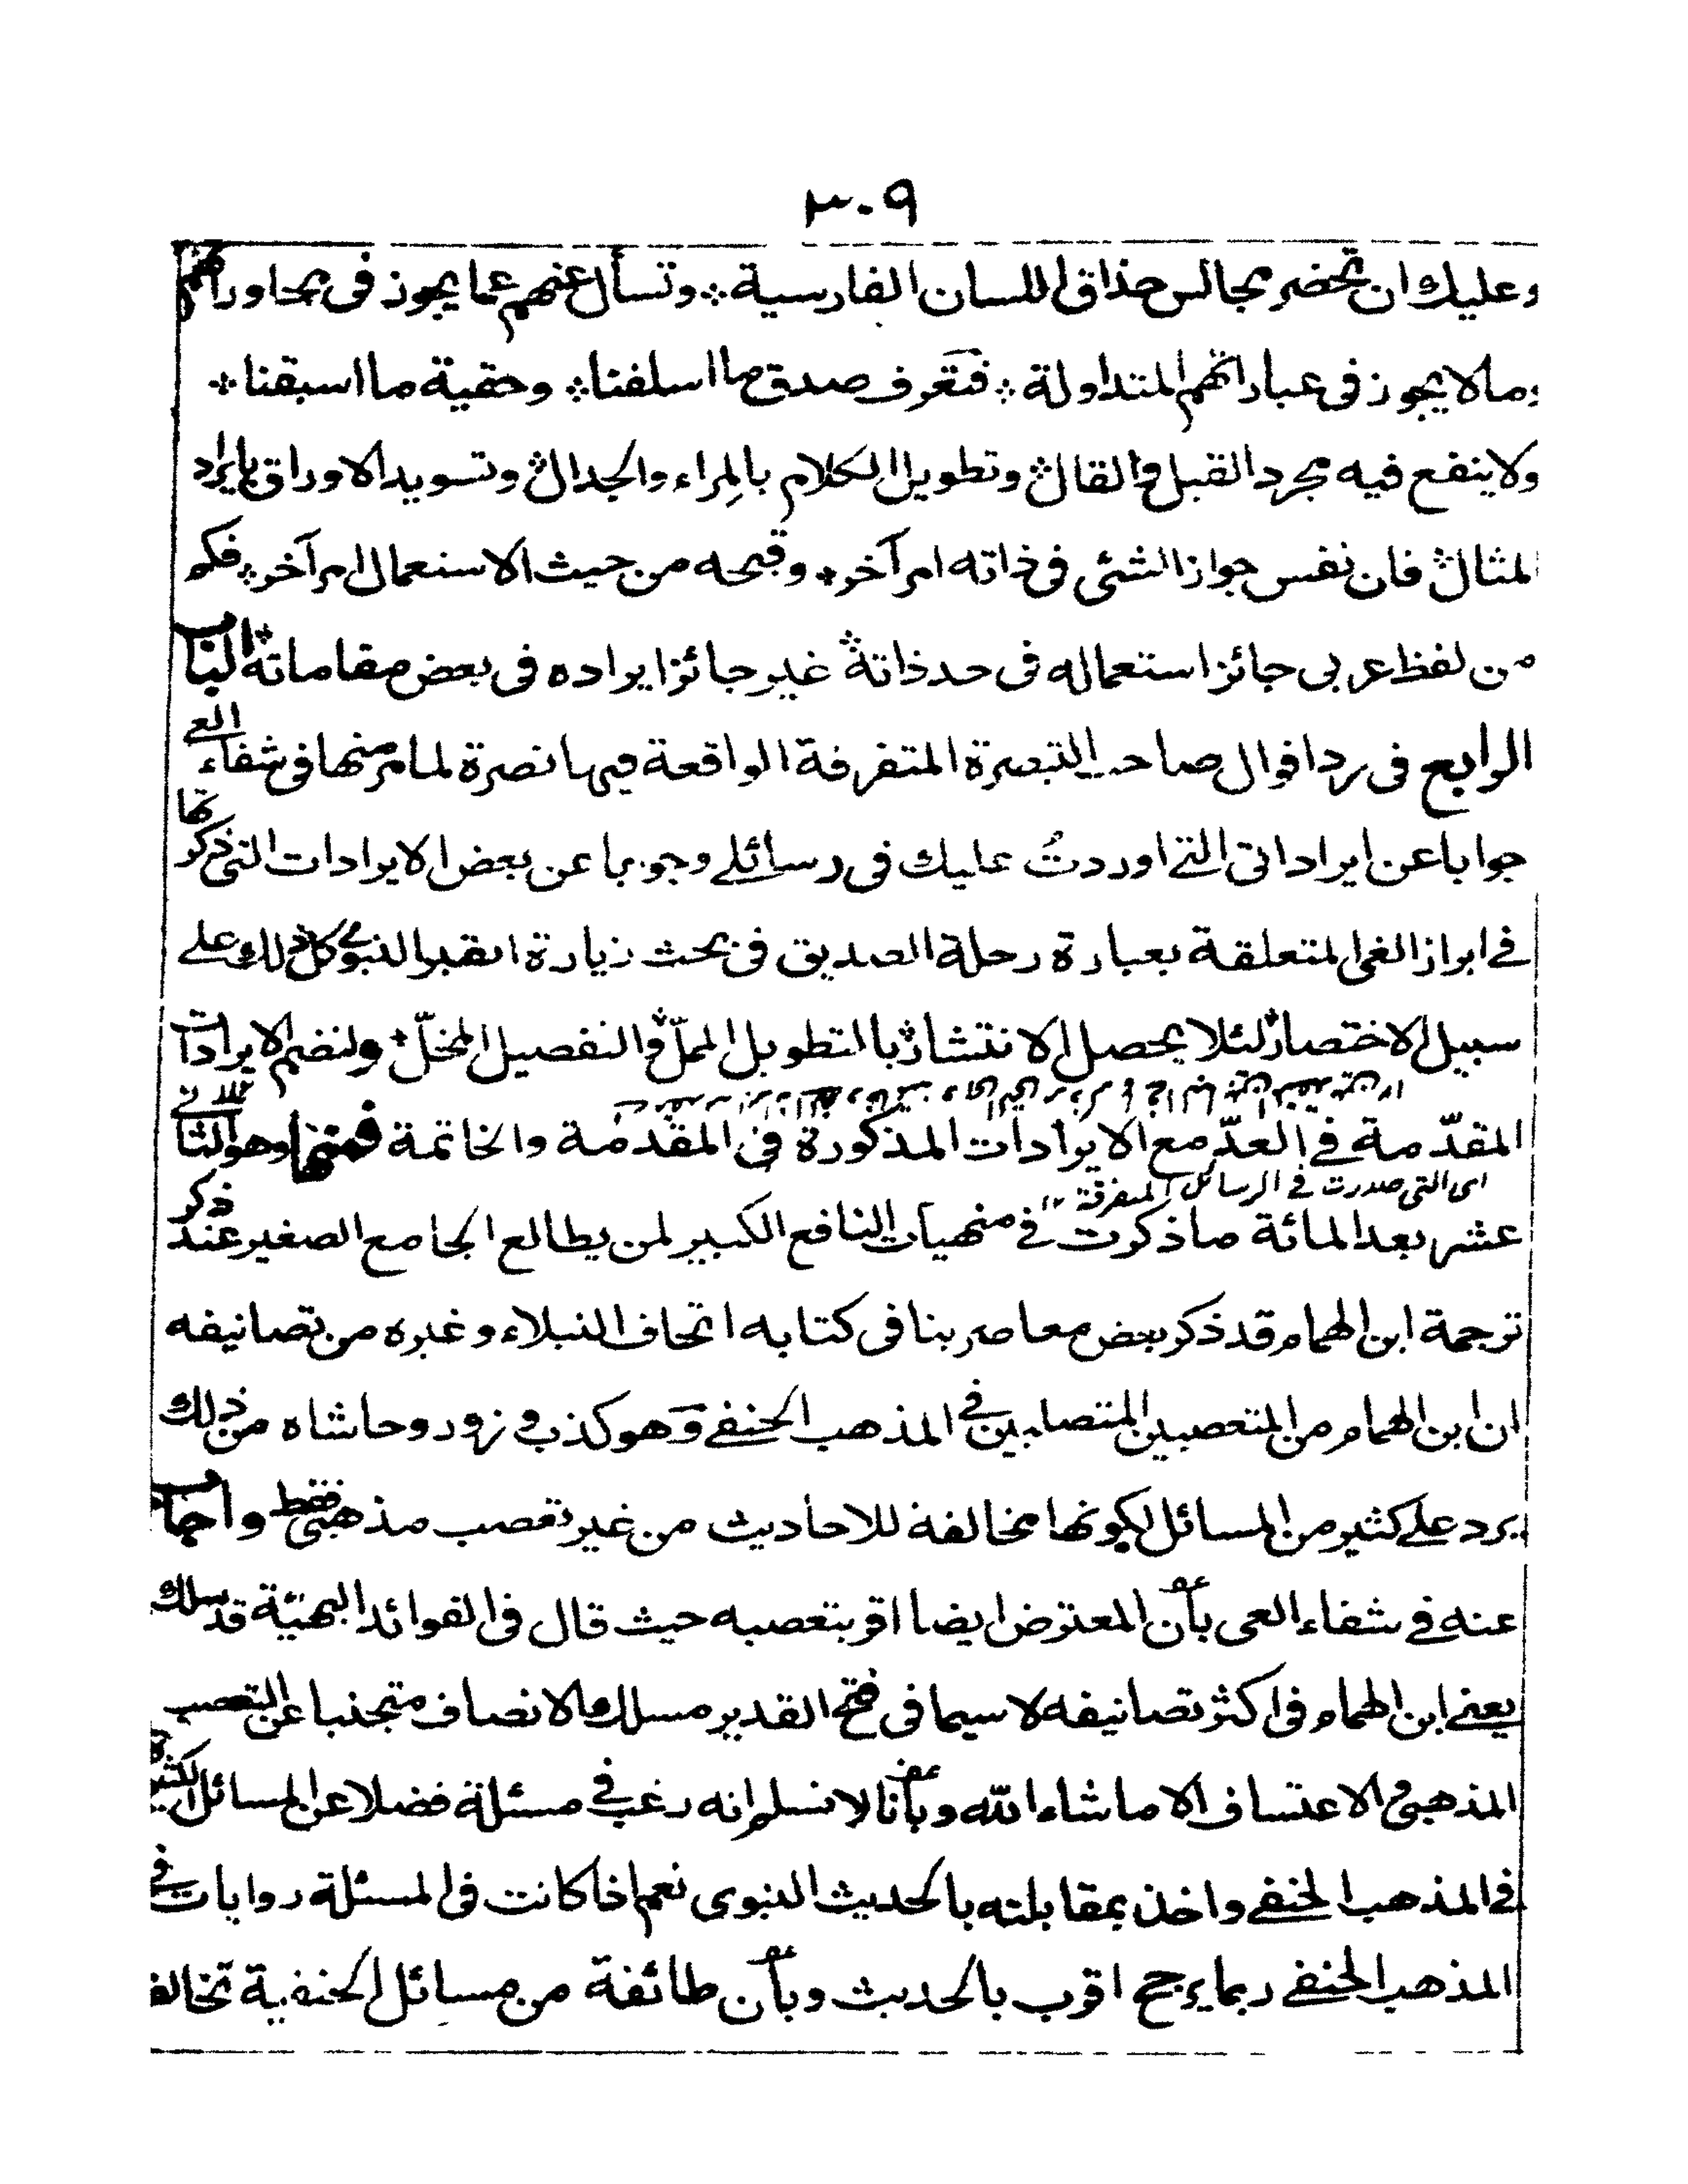 ٣٠٩
وعليك ان تحضر مجالس حذاق اللسان الفارسية ؞ وتسأل عنهم عما يجوز فى محاوراتهم
وما لا يجوز فى عباراتهم المتداولة ؞ فتعرف صدق ما اسلفنا ؞ وحقية ما اسبقنا ؞
ولا ينفع فيه مجرد القيل والقال ؞ وتطويل الكلام بالمِراء والجدال ؞ وتسويد الاوراق بايراد
المثال ؞ فان نفس جواز الشئ فى ذاته امر آخر ؞ وقبحه من حيث الاستعمال امر آخر ؞ فكم
من لفظ عربى جائز استعماله فى حد ذاته ؞ غير جائز ايراده فى بعض مقاماته ؞ الباب
الرابع فى رد اقوال صاحب التبصرة المتفرقة الواقعة فيها نصرة لما مر منها فى شفاء العى
جوابا عن ايراداتى التى اوردتُ عليك فى رسائلى وجوابا عن بعض الايرادات التى ذكرتها
فى ابراز الغى المتعلقة بعبارة رحلة الصديق فى بحث زيارة القبر النبوى كل ذلك على
سبيل الاختصار ؞ لئلا يحصل الانتشار ؞ بالتطويل المملّ ؞ والتفصيل المخلّ ؞ ولنضم الايرادات
المقدّمة فى العدّ مع الايرادات المذكورة فى المقدمة والخاتمة فمنها وهو الثالث
اى التى صدرت فى الرسائل المتفرقة
عشر بعد المائة ما ذكرت فى منهيات النافع الكبير لمن يطالع الجامع الصغير عند ذكر
ترجمة ابن الهمام قد ذكر بعض معاصرينا فى كتابه اتحاف النبلاء وغيره من تصانيفه
ان ابن الهمام من المتعصبين المتصلبين فى المذهب الحنفى وهو كذب وزور وحاشاه من ذلك
يرد على كثير من المسائل لكونها مخالفة للاحاديث من غير تعصب مذهبى فقط واجاب
عنه فى شفاء العى بأن المعترض ايضا اقر بتعصبه حيث قال فى الفوائد البهيّة قد سلك
يعنى ابن الهمام فى اكثر تصانيفه لا سيما فى فتح القدير مسلك الانصاف متجنبا عن التعصب
المذهبى والاعتساف الا ما شاء الله وبأنا لا نسلم انه رغب فى مسئلة فضلا عن المسائل الكثيرة
فى المذهب الحنفى واخذ بمقابلته بالحديث النبوى نعم اذا كانت فى المسئلة روايات فى
المذهب الحنفى ربما يرجح اقرب بالحديث وبأن طائفة من مسائل الحنفية تخالف